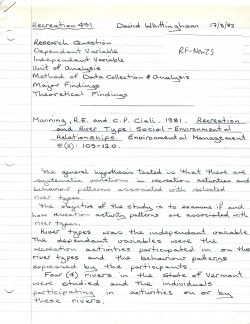 Recreation 491 David Whittingham 17/8/82
Research Question
Dependent Variable
Independent Variable
Unit of Analysis
Method of Data Collection & Analysis
Major Findings
Theoretical Findings
Manning, R.E. and C.P. Ciali. 1981. Recreation
and River Type: Social-Environmental
Relationships. Environmental Management
5(2): 109-120.
The general hypothesis tested is that there are
systematic variations in recreation activities and
behaviour patterns associated with selected
river types.
The objective of the study is to examine if and
how recreation activity patterns are associated with
river types.
River types was the independent variable.
The dependant variables were the
recreation activities participated in on the
river types and the behaviour patterns
expressed by the participants.
Four (4) rivers in the State of Vermont
were studied and the individuals
participating in activities on or by
these rivers.